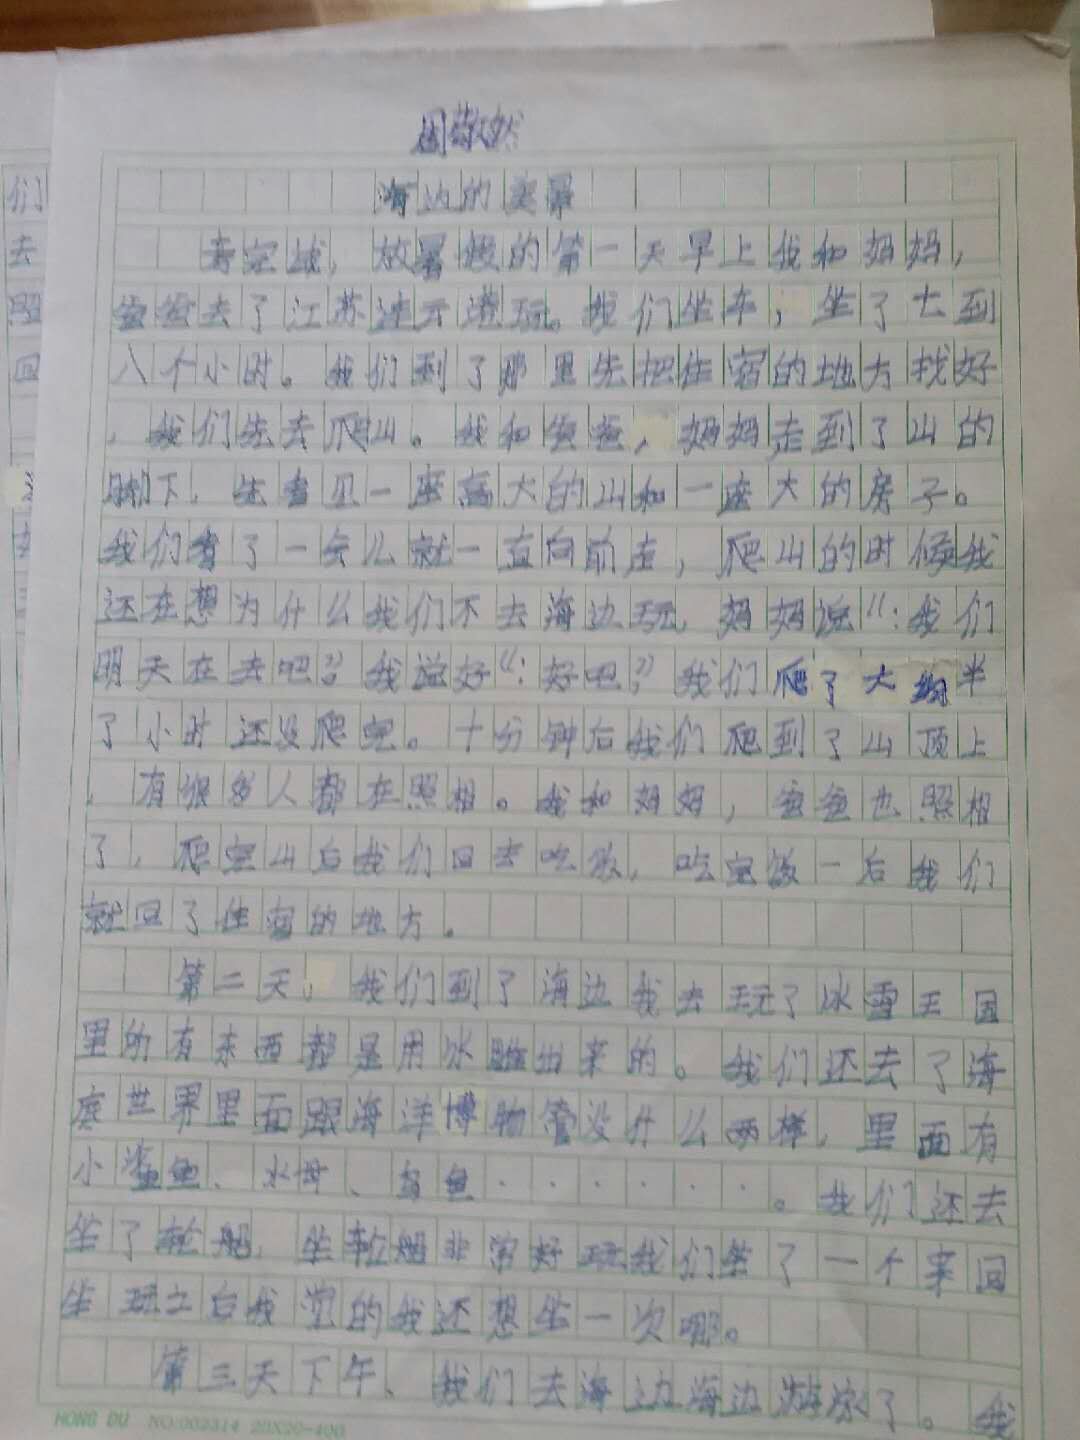 周敬然
海边的美景
考完试，放暑假的第一天早上我和妈妈，
爸爸去了江苏连云港玩。我们坐车，坐了七到
八个小时。我们到了那里先把住宿的地方找好
，我们先去爬山。我和爸爸，妈妈走到了山的
脚下，先看见一座高大的山和一座大的房子。
我们看了一会儿就一直向前走，爬山的时候我
还在想为什么我们不去海边玩，妈妈说“：我们
明天在去吧”，我说好“：好吧”，我们爬了大约半
了小时还没爬完。十分钟后我们爬到了山顶上
，有很多人都在照相。我和妈妈，爸爸也照相
了，爬完山后我们回去吃饭，吃完饭一后我们
就回了住宿的地方。
第二天，我们到了海边我去玩了冰雪王国
里的有东西都是用冰雕出来的。我们还去了海
底世界里面跟海洋博物管没什么两样，里面有
小鲨鱼、水母、乌鱼······。我们还去
坐了轮船，坐轮船非常好玩我们坐了一个来回
坐玩之后我觉的我还想坐一次哪。
第三天下午、我们去海边海边游泳了。我
HONG DU NO:002314 20X20=400
们
去
照
回